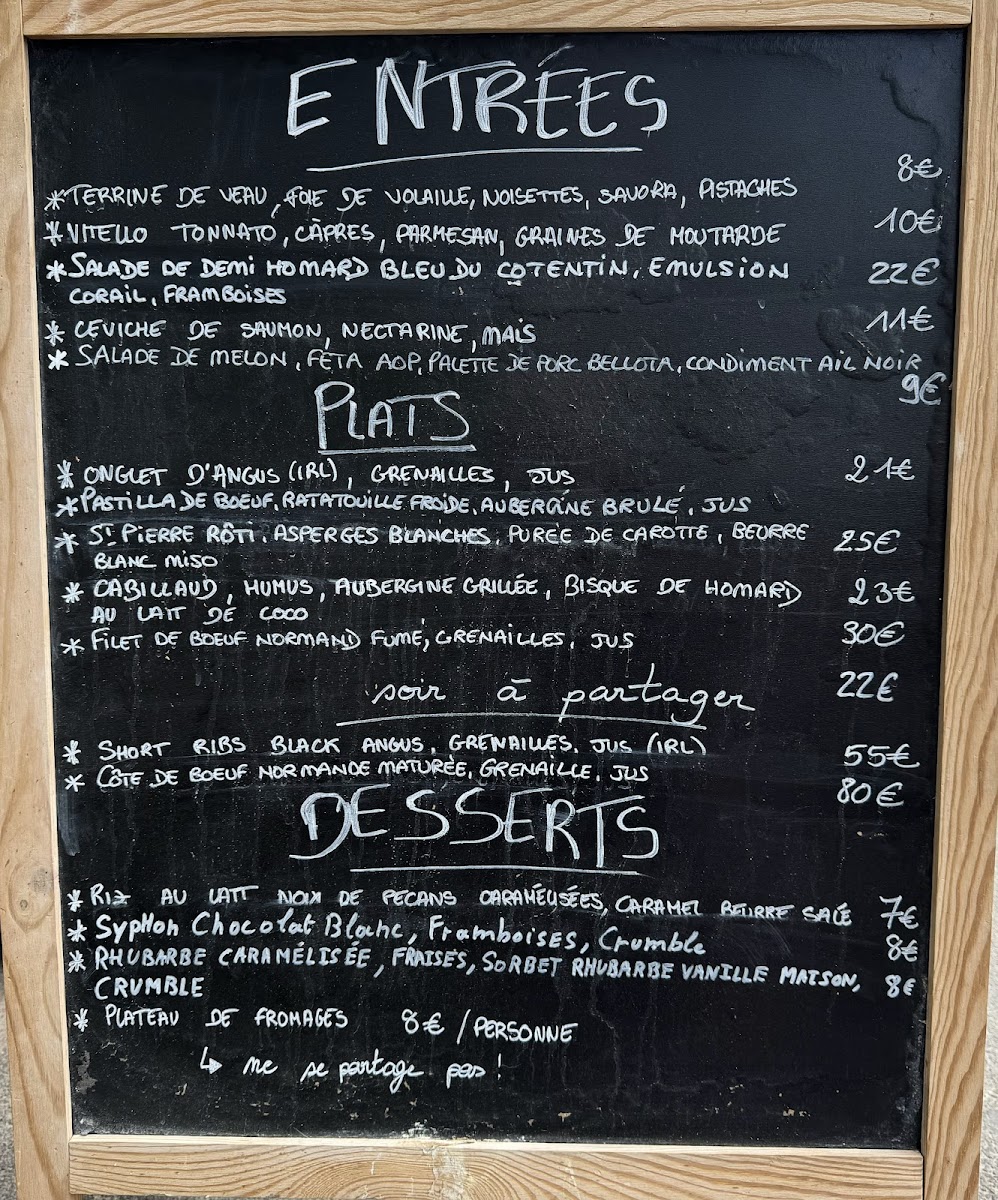 ENTRÉES
* TERRINE DE VEAU, FOIE DE VOLAILLE, NOISETTES, SAVORA, PISTACHES 8€
* VITELLO TONNATO, CÂPRES, PARMESAN, GRAINES DE MOUTARDE 10€
* SALADE DE DEMI HOMARD BLEU DU COTENTIN, EMULSION 22€
CORAIL, FRAMBOISES
* CEVICHE DE SAUMON, NECTARINE, MAÏS 11€
* SALADE DE MELON, FÉTA AOP, PALETTE DE PORC BELLOTA, CONDIMENT AIL NOIR
9€
PLATS
* ONGLET D'ANGUS (IRL), GRENAILLES, JUS 21€
* PASTILLA DE BOEUF, RATATOUILLE FROIDE, AUBERGINE BRULÉ, JUS
* ST PIERRE RÔTI, ASPERGES BLANCHES, PURÉE DE CAROTTE, BEURRE 25€
BLANC MISO
* CABILLAUD, HUMUS, AUBERGINE GRILLÉE, BISQUE DE HOMARD 23€
AU LAIT DE COCO
* FILET DE BOEUF NORMAND FUMÉ, GRENAILLES, JUS 30€
soir à partager 22€
* SHORT RIBS BLACK ANGUS, GRENAILLES, JUS (IRL) 55€
* CÔTE DE BOEUF NORMANDE MATURÉE, GRENAILLE, JUS 80€
DESSERTS
* RIZ AU LAIT NOIX DE PECANS CARAMÉLISÉES, CARAMEL BEURRE SALÉ 7€
* SypHon Chocolat Blanc, Framboises, Crumble 8€
* RHUBARBE CARAMÉLISÉE, FRAISES, SORBET RHUBARBE VANILLE MAISON, 8€
CRUMBLE
* PLATEAU DE FROMAGES 8€ / PERSONNE
↳ ne se partage pas !